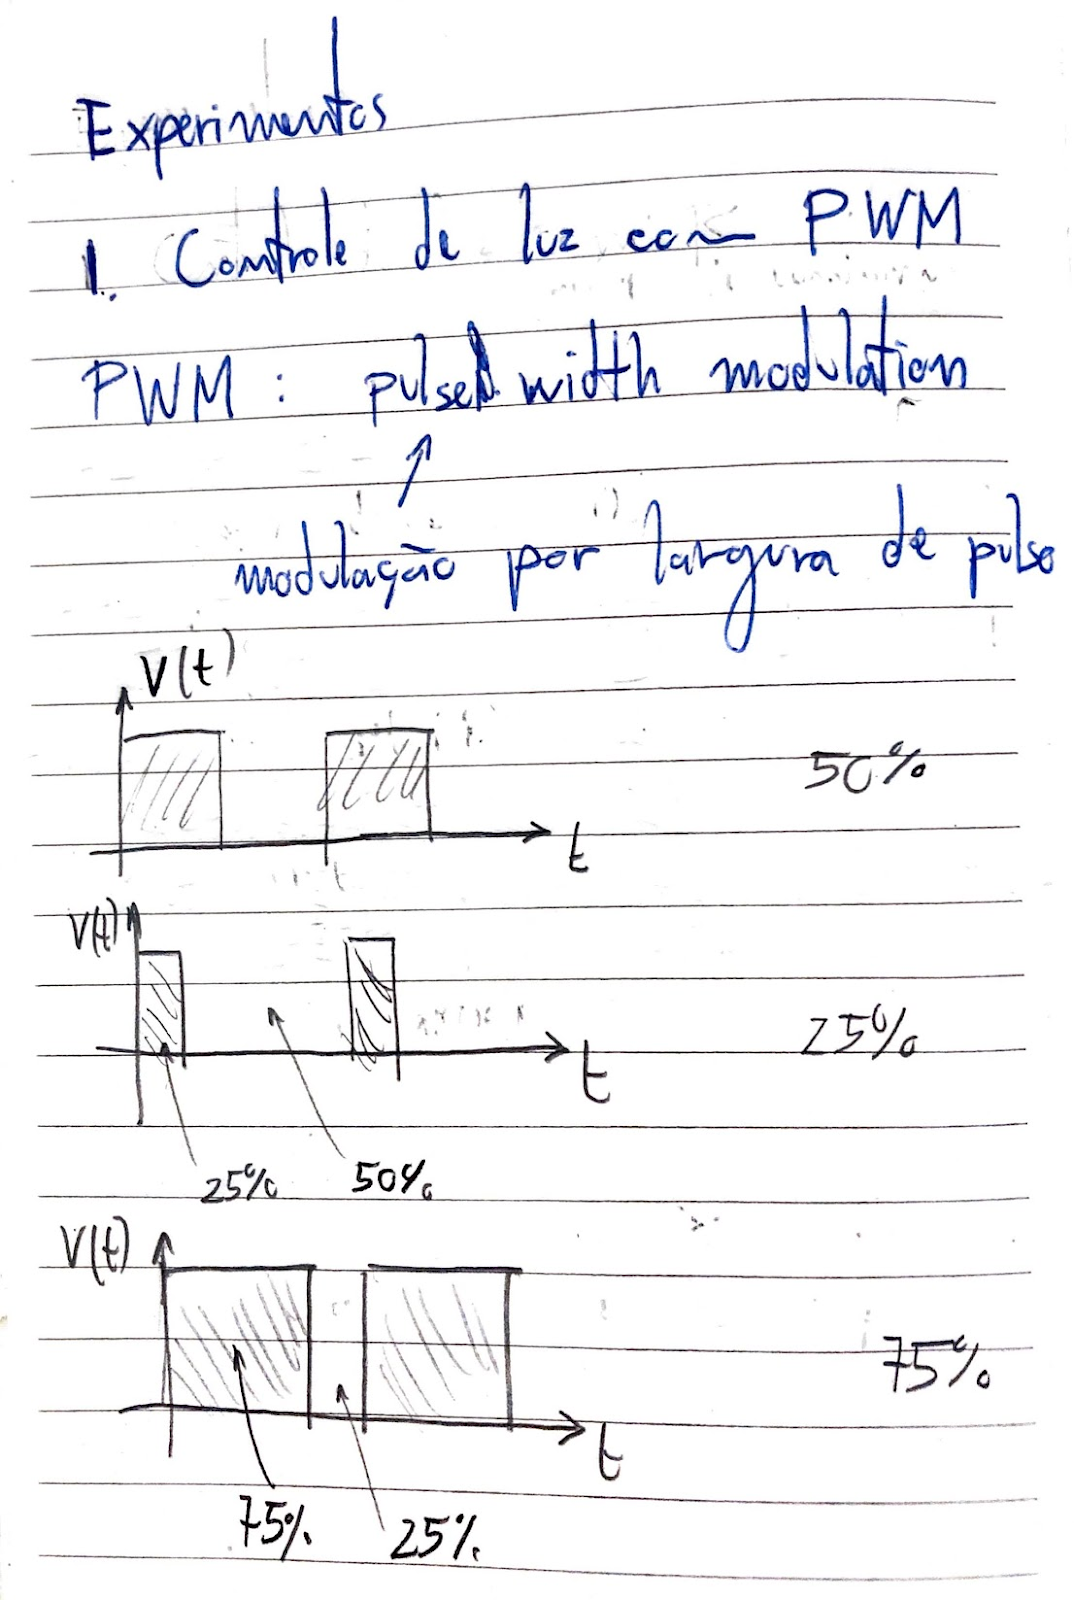 Experimentos
1. Controle de luz com PWM
PWM: pulse width modulation
modulação por largura de pulso
V(t)
50%
t
V(t)
25%
t
25% 50%
V(t)
75%
t
75% 25%